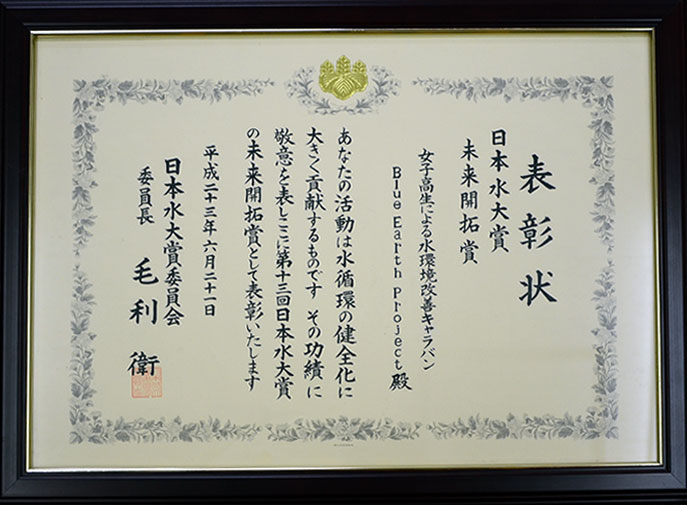 表彰状
日本水大賞
未来開拓賞
女子高生による水環境改善キャラバン
Blue Earth Project 殿
あなたの活動は水循環の健全化に
大きく貢献するものです その功績に
敬意を表しここに第十三回日本水大賞
の未来開拓賞として表彰いたします
平成二十三年六月二十一日
日本水大賞委員会
委員長 毛利 衛